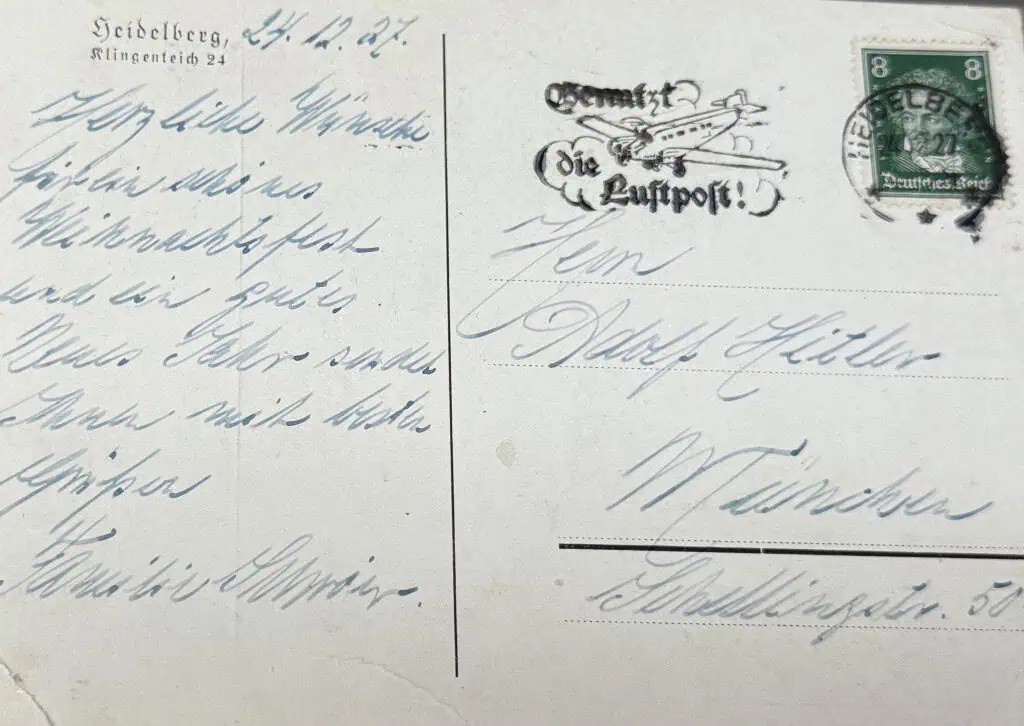 Heidelberg, 24.12.27.
Klingenteich 24
Herzliche Wünsche
für ein schönes
Weihnachtsfest
und ein gutes
Neues Jahr sendet
Ihnen mit besten
Grüßen
Familie
Benutzt
die
Luftpost!
8 8
HEIDELBERG
24.12.27
Deutsches Reich
Herrn
Adolf Hitler
München
Schellingstr. 50